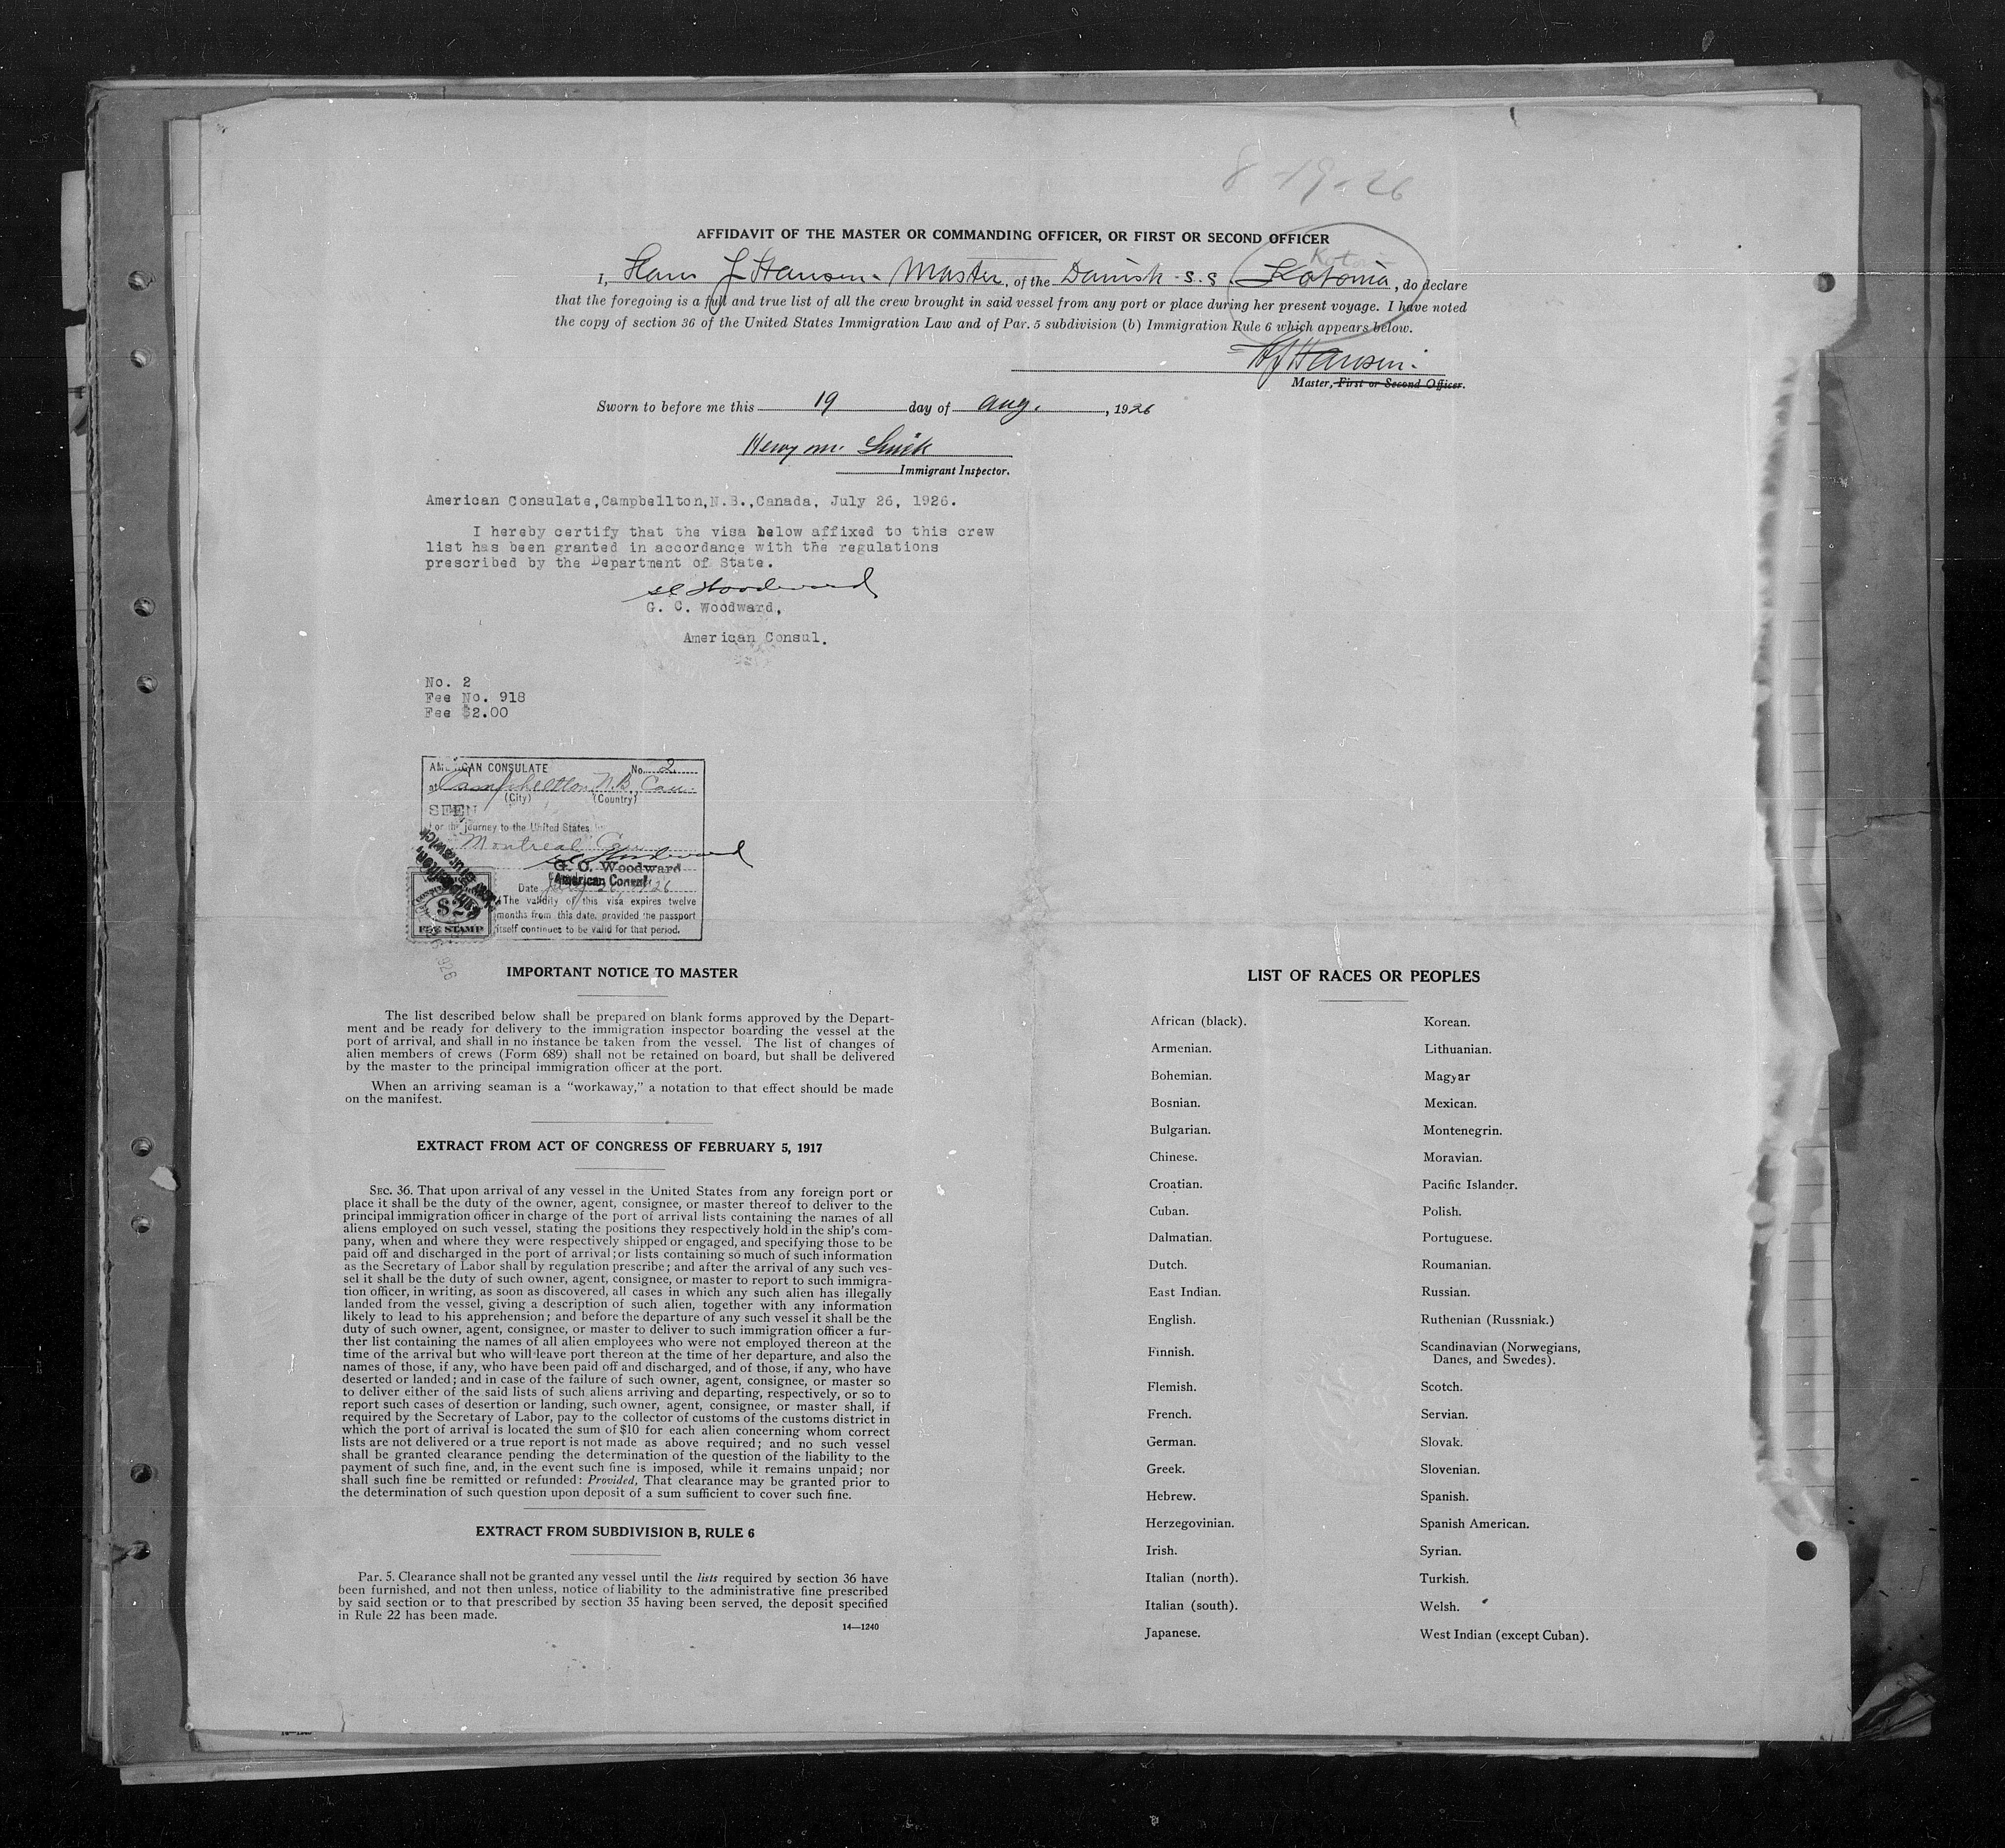 8-19-26
AFFIDAVIT OF THE MASTER OR COMMANDING OFFICER, OR FIRST OR SECOND OFFICER
I, Hans J Hansen - Master, of the Danish S.S. Kotonia, do declare
that the foregoing is a full and true list of all the crew brought in said vessel from any port or place during her present voyage. I have noted
the copy of section 36 of the United States Immigration Law and of Par. 5 subdivision (b) Immigration Rule 6 which appears below.
HJHansen.
Master, First or Second Officer.
Sworn to before me this 19 day of Aug., 1926
Immigrant Inspector.
American Consulate,Campbellton,N.B.,Canada, July 26, 1926.
I hereby certify that the visa below affixed to this crew
list has been granted in accordance with the regulations
prescribed by the Department of State.
G. C. Woodward,
American Consul.
No. 2
Fee No. 918
Fee $2.00
AMERICAN CONSULATE No. 2
at Campbellton N.B. Can.
(City) (Country)
SEEN
For the journey to the United States
Montreal Can
G. C. Woodward
American Consul
Date July 26, 1926
The validity of this visa expires twelve
months from this date, provided the passport
itself continues to be valid for that period.
$2
FEE STAMP
IMPORTANT NOTICE TO MASTER
The list described below shall be prepared on blank forms approved by the Depart-
ment and be ready for delivery to the immigration inspector boarding the vessel at the
port of arrival, and shall in no instance be taken from the vessel. The list of changes of
alien members of crews (Form 689) shall not be retained on board, but shall be delivered
by the master to the principal immigration officer at the port.
When an arriving seaman is a “workaway,” a notation to that effect should be made
on the manifest.
EXTRACT FROM ACT OF CONGRESS OF FEBRUARY 5, 1917
SEC. 36. That upon arrival of any vessel in the United States from any foreign port or
place it shall be the duty of the owner, agent, consignee, or master thereof to deliver to the
principal immigration officer in charge of the port of arrival lists containing the names of all
aliens employed on such vessel, stating the positions they respectively hold in the ship's com-
pany, when and where they were respectively shipped or engaged, and specifying those to be
paid off and discharged in the port of arrival; or lists containing so much of such information
as the Secretary of Labor shall by regulation prescribe; and after the arrival of any such ves-
sel it shall be the duty of such owner, agent, consignee, or master to report to such immigra-
tion officer, in writing, as soon as discovered, all cases in which any such alien has illegally
landed from the vessel, giving a description of such alien, together with any information
likely to lead to his apprehension; and before the departure of any such vessel it shall be the
duty of such owner, agent, consignee, or master to deliver to such immigration officer a fur-
ther list containing the names of all alien employees who were not employed thereon at the
time of the arrival but who will leave port thereon at the time of her departure, and also the
names of those, if any, who have been paid off and discharged, and of those, if any, who have
deserted or landed; and in case of the failure of such owner, agent, consignee, or master so
to deliver either of the said lists of such aliens arriving and departing, respectively, or so to
report such cases of desertion or landing, such owner, agent, consignee, or master shall, if
required by the Secretary of Labor, pay to the collector of customs of the customs district in
which the port of arrival is located the sum of $10 for each alien concerning whom correct
lists are not delivered or a true report is not made as above required; and no such vessel
shall be granted clearance pending the determination of the question of the liability to the
payment of such fine, and, in the event such fine is imposed, while it remains unpaid; nor
shall such fine be remitted or refunded: Provided, That clearance may be granted prior to
the determination of such question upon deposit of a sum sufficient to cover such fine.
EXTRACT FROM SUBDIVISION B, RULE 6
Par. 5. Clearance shall not be granted any vessel until the lists required by section 36 have
been furnished, and not then unless, notice of liability to the administrative fine prescribed
by said section or to that prescribed by section 35 having been served, the deposit specified
in Rule 22 has been made.
14—1240
LIST OF RACES OR PEOPLES
African (black).
Armenian.
Bohemian.
Bosnian.
Bulgarian.
Chinese.
Croatian.
Cuban.
Dalmatian.
Dutch.
East Indian.
English.
Finnish.
Flemish.
French.
German.
Greek.
Hebrew.
Herzegovinian.
Irish.
Italian (north).
Italian (south).
Japanese.
Korean.
Lithuanian.
Magyar
Mexican.
Montenegrin.
Moravian.
Pacific Islander.
Polish.
Portuguese.
Roumanian.
Russian.
Ruthenian (Russniak.)
Scandinavian (Norwegians,
Danes, and Swedes).
Scotch.
Servian.
Slovak.
Slovenian.
Spanish.
Spanish American.
Syrian.
Turkish.
Welsh.
West Indian (except Cuban).